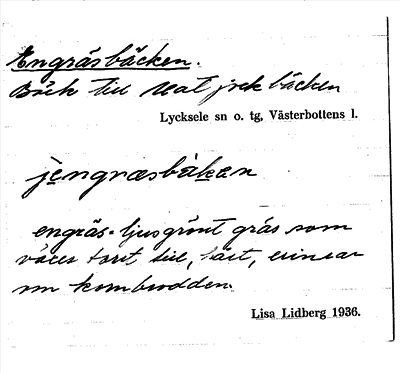 Engräsbäcken.
Bäck till Matjockbäcken
Lycksele sn o. tg, Västerbottens l.
jengræsbäkæn
engräs = ljusgrönt gräs som
växer tort till, tätt, erinrar
om kornbrodden.
Lisa Lidberg 1936.